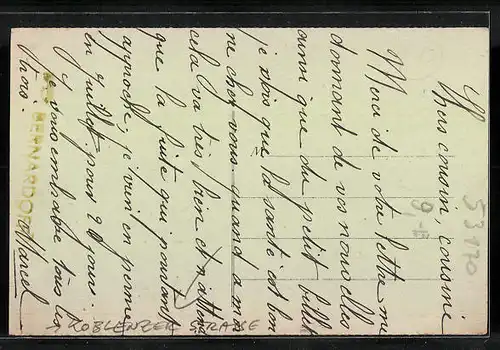 Chers cousin, cousine
Merci de votre lettre me
donnant de vos nouvelles
ainsi que du petit billet
je vois que la santé est bon
ne chez vous quand a moi
cela va très bien et n'attend
que la fuite qui pourtant
approche, je vien en perme
en Juillet pour 20 jour.
Je vous embrasse tous les
trois. Marcel
BERNARDO
53170
KOBLENZER STRASSE